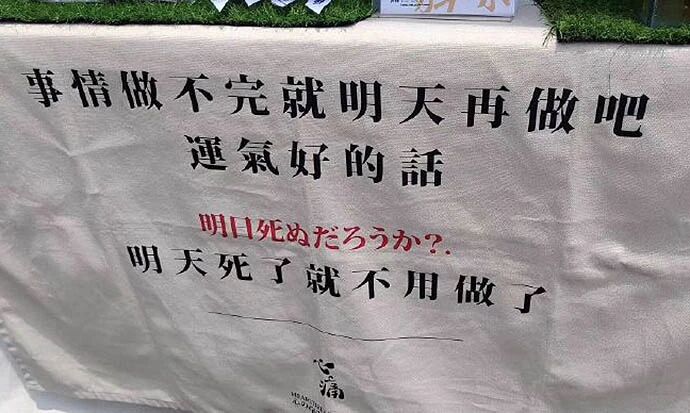 事情做不完就明天再做吧
運氣好的話
明日死ぬだろうか?.
明天死了就不用做了
心痛